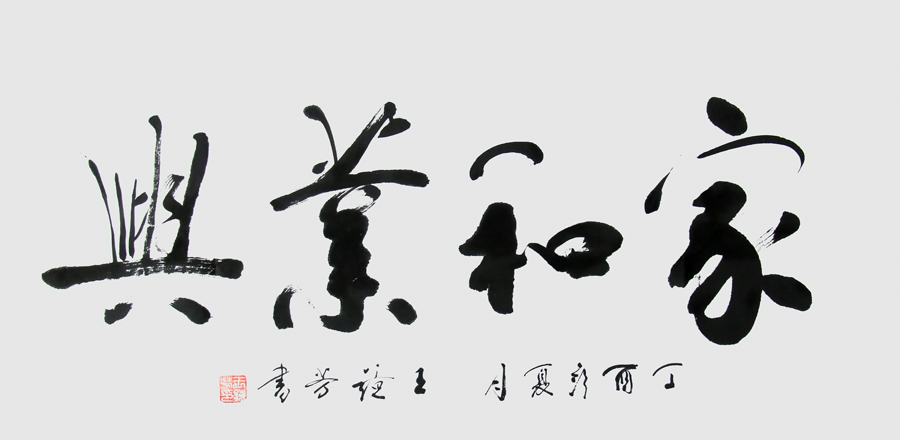 家和業興
丁酉 夏月 王 芳書